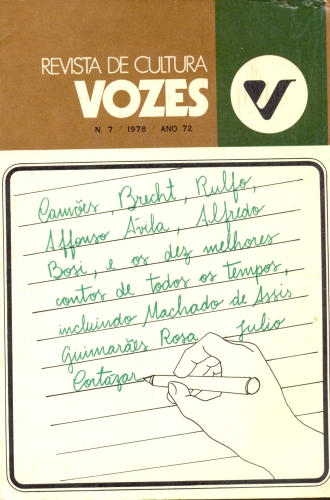 REVISTA DE CULTURA
VOZES
N. 7 / 1978 / ANO 72
Camões, Brecht, Rulfo,
Affonso Ávila, Alfredo
Bosi, e os dez melhores
contos de todos os tempos,
incluindo Machado de Assis
Guimarães Rosa Julio
Cortázar